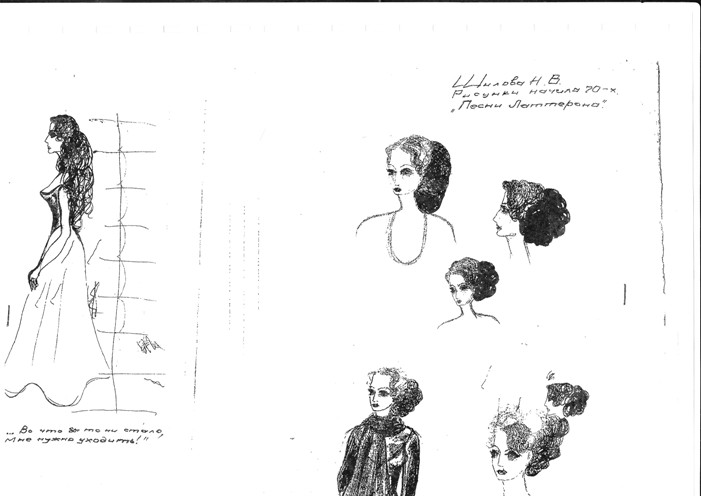 Шилова Н. В.
Рисунки начала 70-х.
„Песни Латтерона".
... Во что бы то ни стало,
мне нужно уходить!"